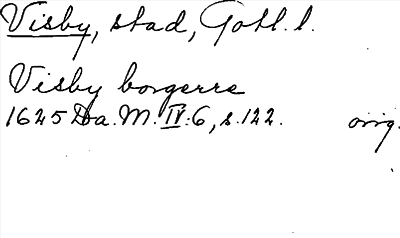 Visby, stad, Gotl. l.
Visby borgerre
1625 Da. M. IV: 6, s. 122. orig.